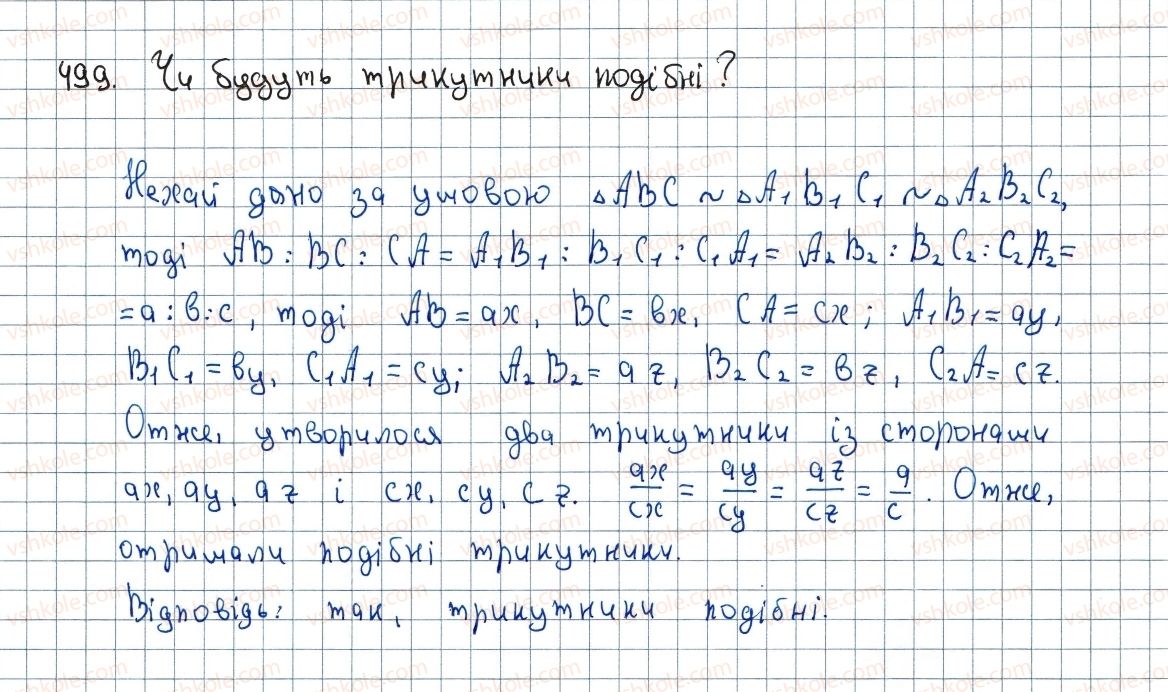 499. Чи будуть трикутники подібні?
Нехай дано за умовою △ABC ~ △A₁B₁C₁ ~ △A₂B₂C₂,
тоді AB : BC : CA = A₁B₁ : B₁C₁ : C₁A₁ = A₂B₂ : B₂C₂ : C₂A₂ =
= a : в : c, тоді AB = ax, BC = вx, CA = cx; A₁B₁ = ay,
B₁C₁ = вy, C₁A₁ = cy; A₂B₂ = az, B₂C₂ = вz, C₂A = cz.
Отже, утворилося два трикутники із сторонами
ax, ay, az і cx, cy, cz. ax/cx = ay/cy = az/cz = a/c. Отже,
отримали подібні трикутники.
Відповідь: так, трикутники подібні.